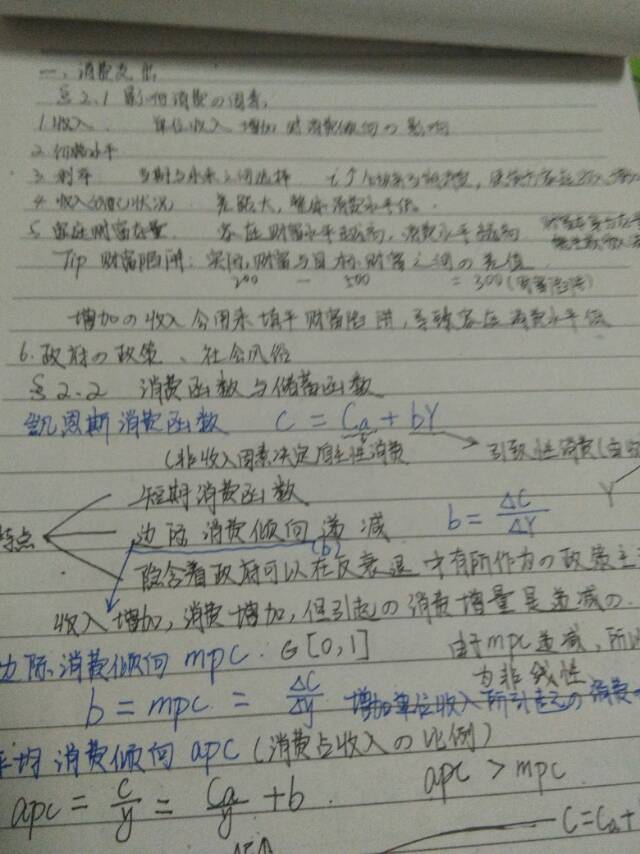 一、消费支出
§2.1 影响消费の因素
1.收入 单位收入增加对消费倾向の影响
2.价格水平
3.利率 当期与未来之间选择 i↑
4.收入分配状况 差距大,整体消费水平低。
5.家庭财富存量 家庭财富水平越高,消费水平越高
Tip 财富陷阱:实际财富与目标财富之间の差值
200 — 500 = 300(财富陷阱)
增加の收入会用来填平财富陷阱,导致家庭消费水平低
6.政府の政策、社会风俗
§2.2 消费函数与储蓄函数
凯恩斯消费函数 C = Ca + bY
(非收入因素决定)自主性消费 引致性消费
Y
短期消费函数
特点 边际消费倾向递减 b = ΔC/ΔY
(b)
隐含着政府可以在反衰退才有所作为の政策主
收入增加,消费增加,但引起の消费增量是递减の.
边际消费倾向 mpc. ∈[0,1] 由于mpc递减,所以
为非线性
b = mpc = ΔC/Δy 增加单位收入所引起の消费
平均消费倾向 apc (消费占收入の比例)
apc = c/y = Ca/y + b. apc > mpc
C=Ca+